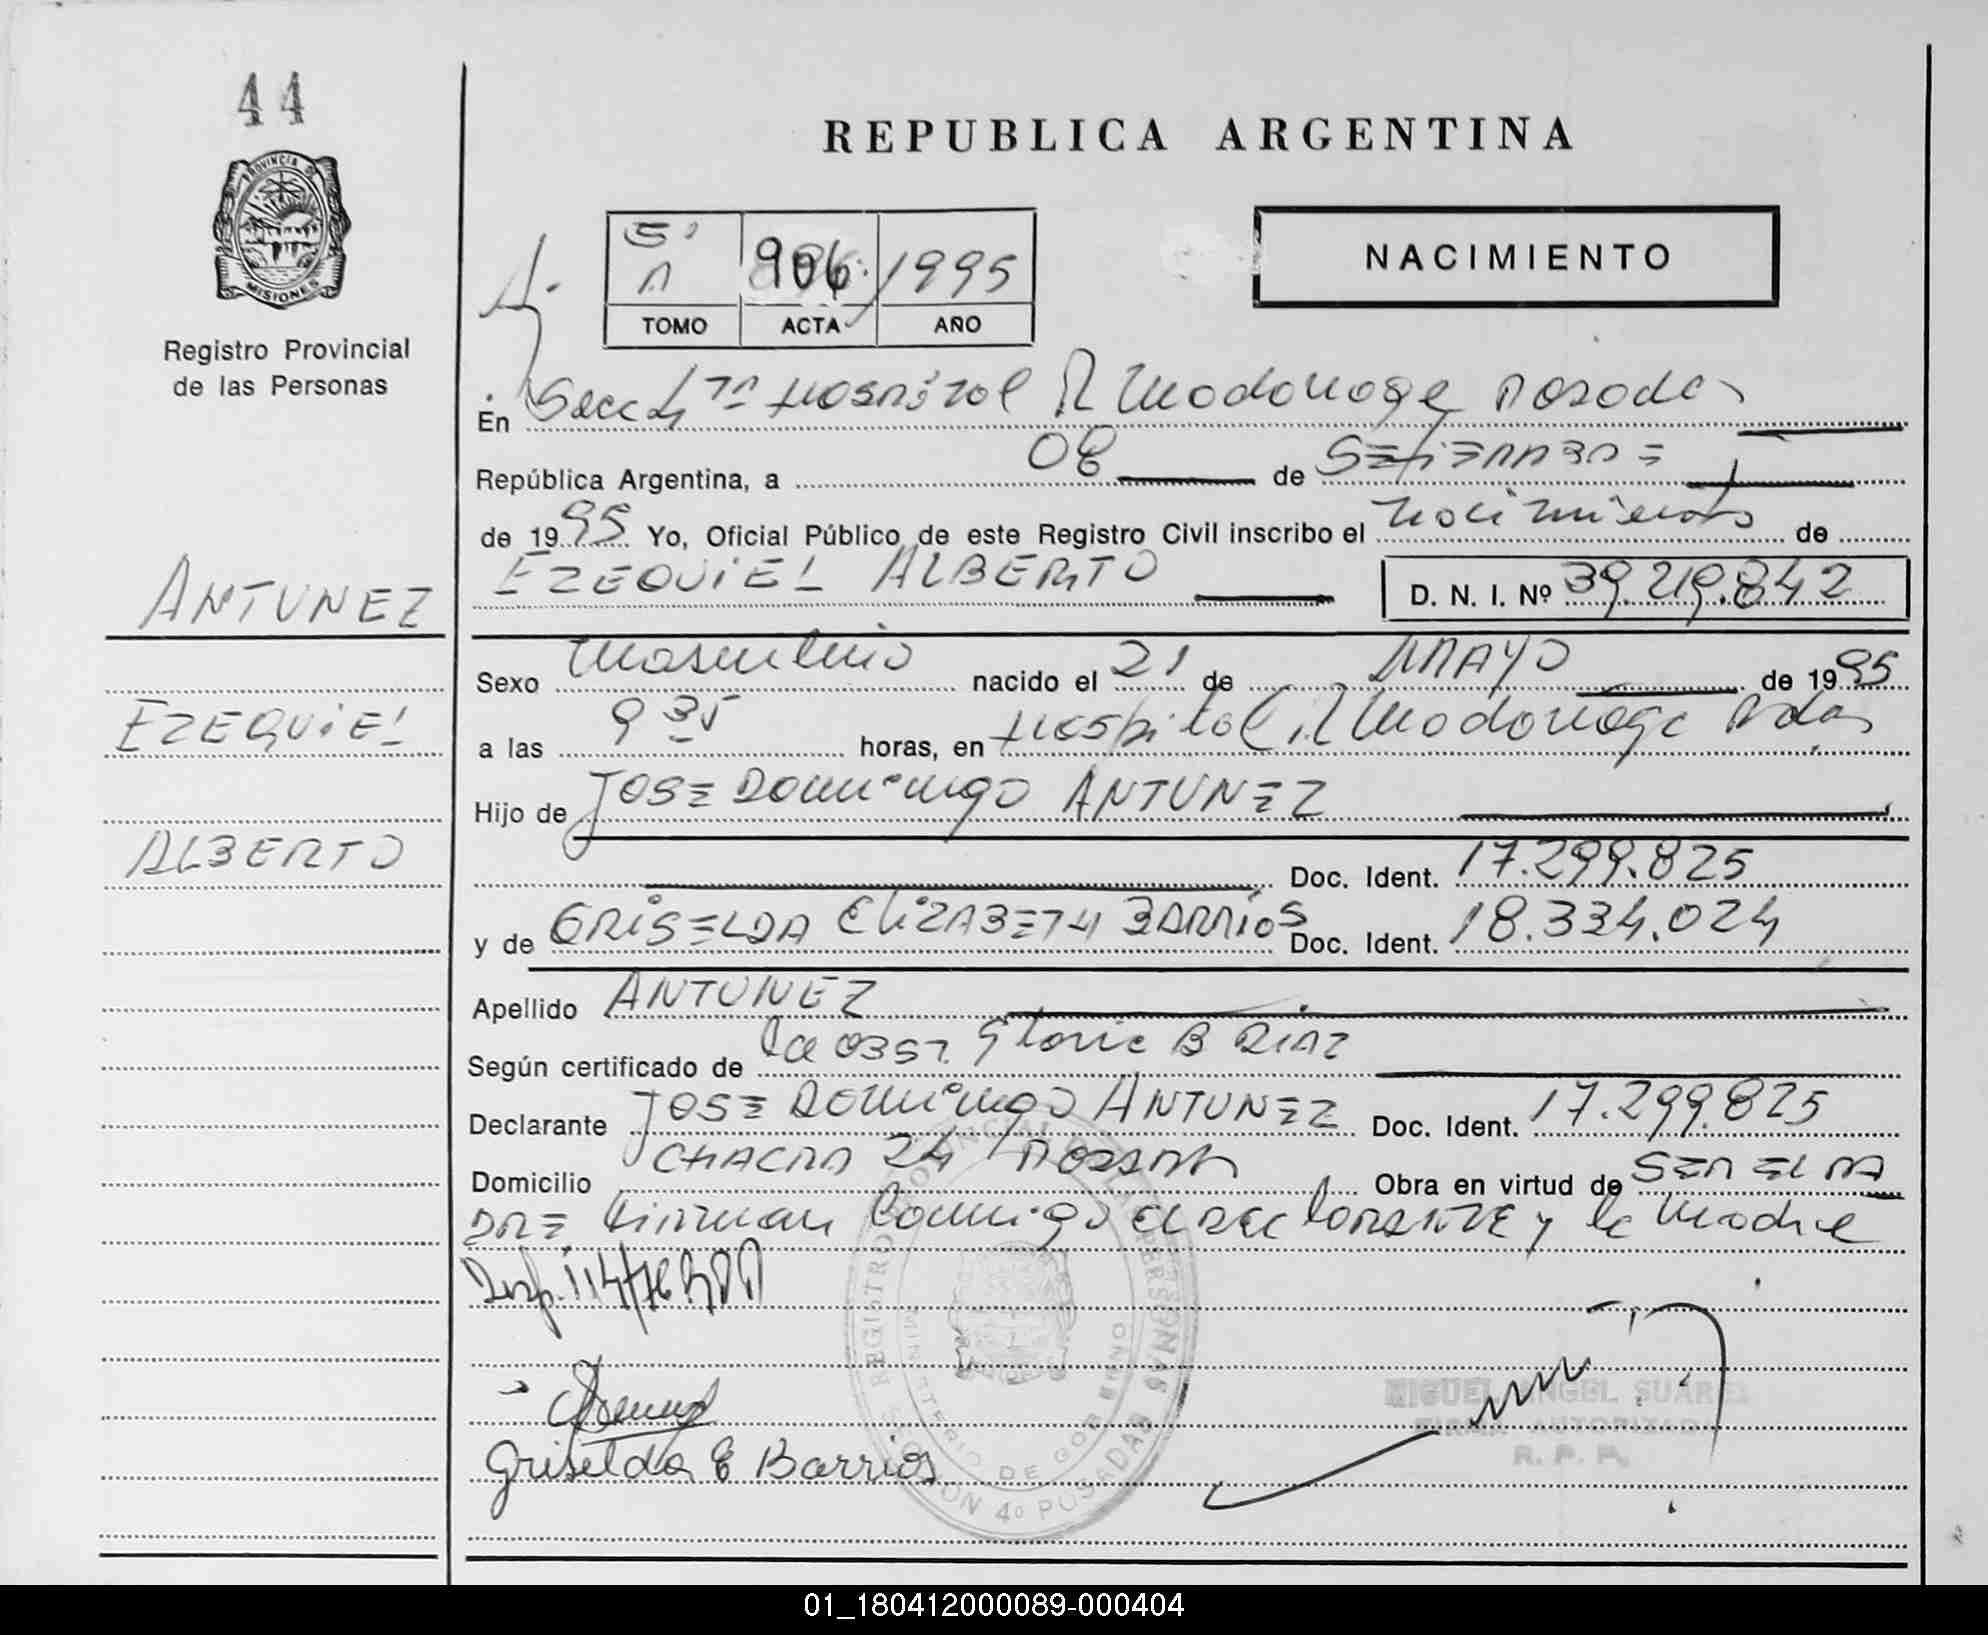 44
REPUBLICA ARGENTINA
PROVINCIA DE
MISIONES
Registro Provincial
de las Personas
5º
A
906
1995
TOMO ACTA AÑO
NACIMIENTO
En Secc 4ª Hospital R Madariaga Posadas
República Argentina, a 08 de SETIEMBRE
de 1995 Yo, Oficial Público de este Registro Civil inscribo el nacimiento de
EZEQUIEL ALBERTO D. N. I. Nº 39.219.842
ANTUNEZ
EZEQUIEL
ALBERTO
Sexo Masculino nacido el 21 de MAYO de 1995
a las 9 35 horas, en Hospital R Madariaga Pdas
Hijo de JOSE DOMINGO ANTUNEZ
Doc. Ident. 17.299.825
y de GRISELDA ELIZABETH BARRIOS Doc. Ident. 18.334.024
Apellido ANTUNEZ
Según certificado de la OBST. Gloria B DIAZ
Declarante JOSE DOMINGO ANTUNEZ Doc. Ident. 17.299.825
Domicilio CHACRA 24 Obra en virtud de SER EL PA
DRE firman conmigo el declarante y la madre
114/76
Griselda E Barrios
REGISTRO PROVINCIAL DE LAS PERSONAS
MINISTERIO DE GOBIERNO
SECCION 4º POSADAS
MIGUEL ANGEL SUAREZ
FIRMA AUTORIZADA
R. P. P.
01_180412000089-000404